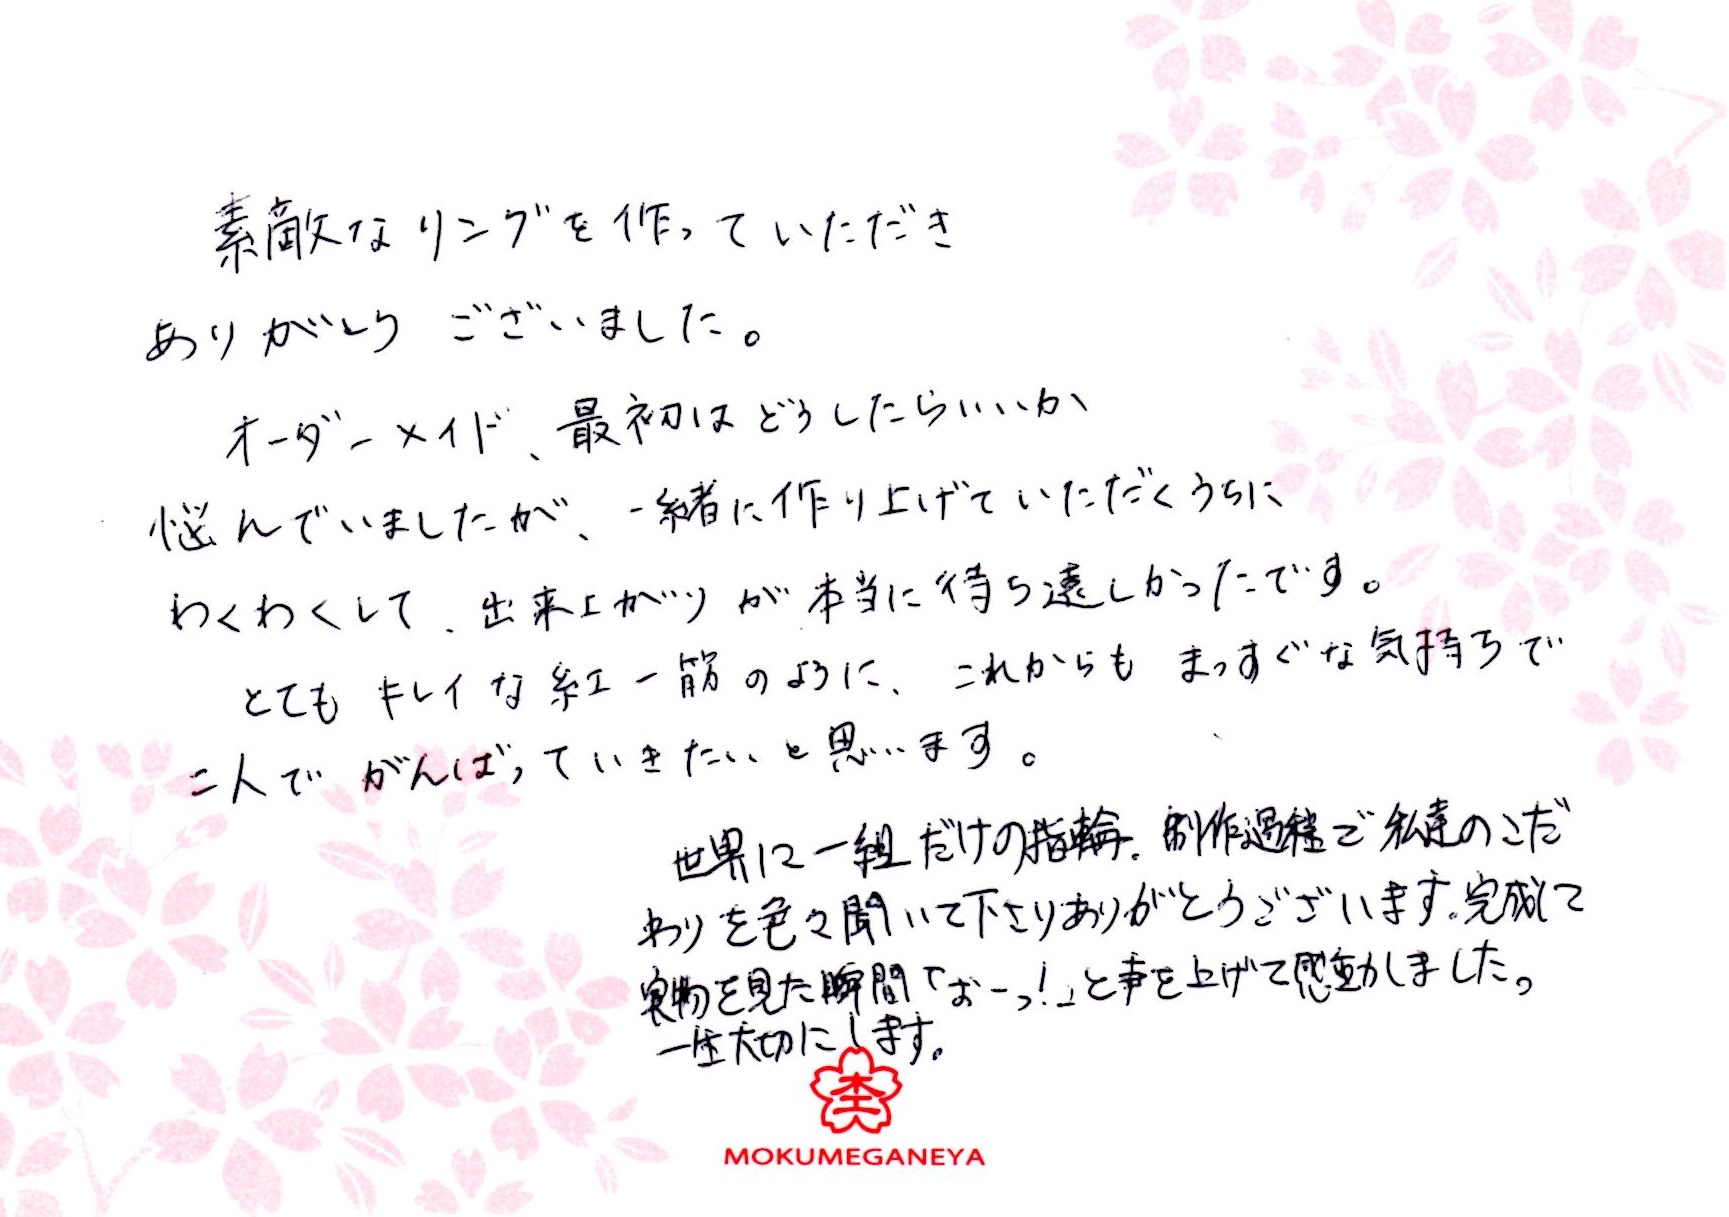 素敵なリングを作っていただき
ありがとう ございました。
オーダーメイド、最初はどうしたらいいか
悩んでいましたが、一緒に作り上げていただくうちに
わくわくして、出来上がりが本当に待ち遠しかったです。
とても キレイな紅一筋のように、これからも まっすぐな気持ちで
二人で がんばっていきたいと思います。
世界に一組だけの指輪。制作過程で私達のこだ
わりを色々聞いて下さりありがとうございます。完成して
実物を見た瞬間「おーっ!」と声を上げて感動しました。
一生大切にします。
MOKUMEGANEYA